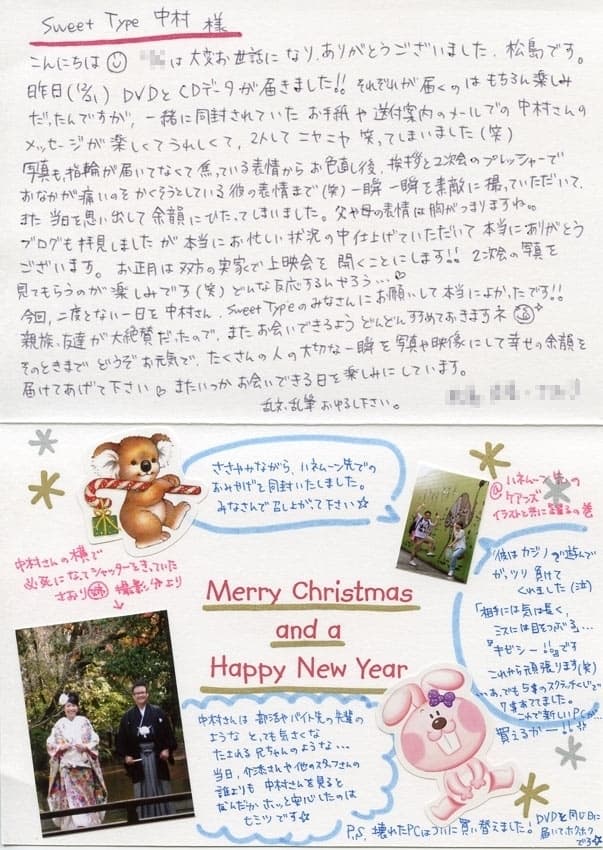 Sweet Type 中村 様
こんにちは は大変お世話になり、ありがとうございました。松島です。
昨日(12/21) DVDとCDデータが届きました!! それぞれが届くのはもちろん楽しみ
だったんですが、一緒に同封されていたお手紙や送付案内のメールでの中村さんの
メッセージが楽しくてうれしくて、2人してニヤニヤ笑ってしまいました(笑)
写真も、指輪が届いてなくて焦っている表情からお色直し後、挨拶と2次会のプレッシャーで
おなかが痛いのをかくそうとしている彼の表情まで(笑)一瞬一瞬を素敵に撮っていただいて、
また当日を思い出して余韻にひたってしまいました。父や母の表情は胸がつまりますね。
ブログも拝見しましたが本当にお忙しい状況の中仕上げていただいて本当にありがとう
ございます。お正月は双方の実家で上映会を開くことにします!! 2次会の写真を
見てもらうのが楽しみです(笑)どんな反応するんやろう…
今回、二度とない一日を中村さん、Sweet Typeのみなさんにお願いして本当によかったです!!
親族、友達が大絶賛だったので、またお会いできるようどんどんすすめておきますネ
そのときまでどうぞお元気で、たくさんの人の大切な一瞬を写真や映像にして幸せの余韻を
届けてあげて下さい♡またいつかお会いできる日を楽しみにしています。
乱文、乱筆おゆるし下さい。
ささやかながら、ハネムーン先での
おみやげを同封いたしました。
みなさんで召し上がって下さい☆
@ハネムーン先の
ケアンズ
イラストと共に踊るの巻
中村さんの横で
必死になってシャッターをきっていた
さおり 撮影分より
Merry Christmas
and a
Happy New Year
彼はカジノで遊んで
がッツリ負けて
くれました(泣)
「相手には気は長く、
ミスには目をつぶる…」
『キゼツー!!』です
これから頑張ります(笑)
…あ、でも5本のスクラッチくじで
7本あてました。
これで新しいPCが…
買えるかー!!
中村さんは 部活やバイト先の先輩の
ような とっても気さくな
たよれる兄ちゃんのような…
当日、介添さんや他のスタッフさんの
誰よりも中村さんを見ると
なんだかホッと安心したのは
ヒミツです☆
P.S. 壊れたPCはついに買い替えました! DVDと同じ日に
届いてホクホク
です☆